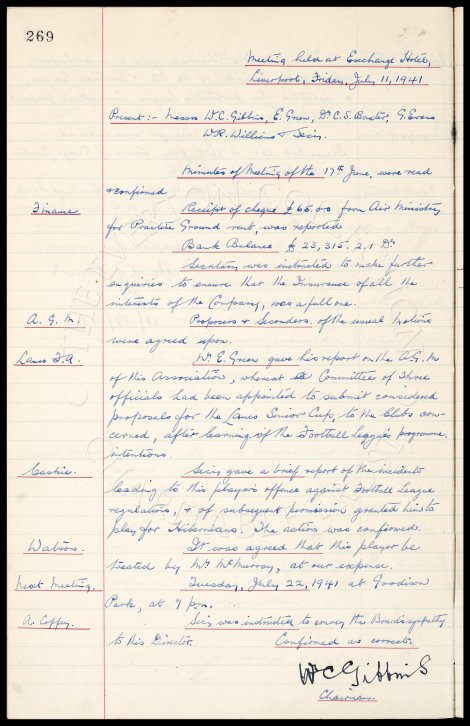 269
Meeting held at Exchange Hotel,
Liverpool, Friday, July 11, 1941
Present :- Messrs W.C. Gibbins, E. Green, Dr C.S. Baxter, G. Evans
W.R. Williams & Secy.
Minutes of Meeting of the 17th June, were read
& confirmed
Finance Receipt of cheque £65.0.0 from Air Ministry
for Practice Ground rent, was reported
Bank Balance £ 23,315. 2. 1 Dr
Secretary was instructed to make further
enquiries to ensure that the Insurance of all the
interests of the Company, was a full one.
A. G. M. Proposers & Seconders, of the usual motions
were agreed upon.
Lancs F.A. Mr. E. Green gave his report on the A.G.M
of this Association, whereat a Committee of three
officials had been appointed to submit considered
proposals for the Lancs Senior Cup, to the Clubs con-
cerned, after learning of the Football League's programme
intentions.
Caskie. Secy gave a brief report of the incidents
leading to this player's offence against Football League
regulations, & of subsequent permission granted him to
play for Hibernians. The action was confirmed.
Watson. It was agreed that this player be
treated by Mr McMurray, at our expense.
Next Meeting. Tuesday, July 22, 1941 at Goodison
Park, at 7 pm.
A. Coffey. Secy was instructed to convey the Board's sympathy
to this Director. Confirmed as correct.
W C Gibbins
Chairman.